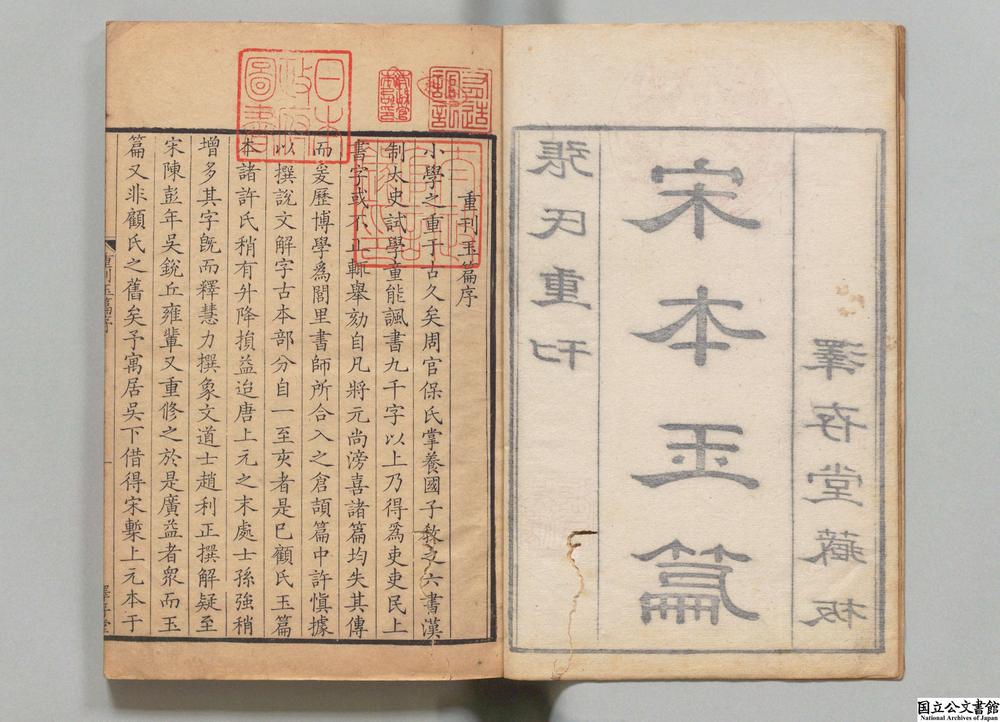 張氏重刊
宋本玉篇
澤存堂藏板
重刊玉篇序
小學之重于古久矣周官保氏掌養國子敎之六書漢
制太史試學童能諷書九千字以上乃得爲吏吏民上
書字或不正輒舉劾自凡將元尚滂喜諸篇均失其傳
而爰歷博學爲閭里書師所合入之倉頡篇中許愼據
以撰說文解字古本部分自一至亥者是已顧氏玉篇
本諸許氏稍有升降損益迨唐上元之末處士孫強稍
增多其字旣而釋慧力撰象文道士趙利正撰解疑至
宋陳彭年吳銳丘雍輩又重修之於是廣益者衆而玉
篇又非顧氏之舊矣予寓居吳下借得宋槧上元本于
重刊玉篇序
一
澤存堂
日本政府圖書
国立公文書館
National Archives of Japan